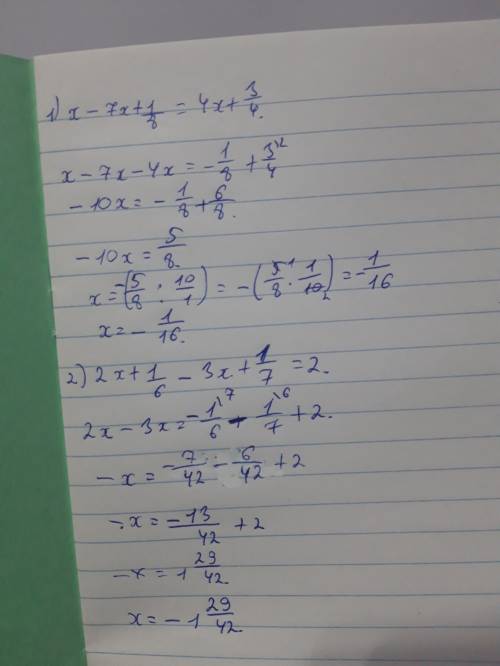 1) x - 7x + 1/8 = 4x + 3/4.
x - 7x - 4x = - 1/8 + 3\2/4
- 10x = - 1/8 + 6/8.
- 10x = 5/8.
x = -(5/8 : 10/1) = - (5¹/8 · 1/10₂) = - 1/16
x = - 1/16.
2) 2x + 1/6 - 3x + 1/7 = 2.
2x - 3x = - 1\7/6 - 1\6/7 + 2.
- x = - 7/42 - 6/42 + 2
- x = - 13/42 + 2
- x = 1 29/42.
x = - 1 29/42.